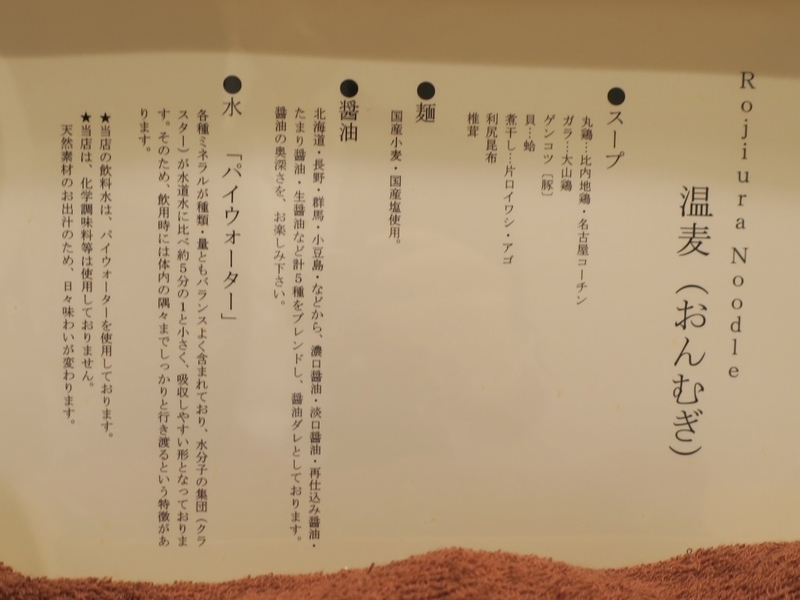 Rojiura Noodle
温麦（おんむぎ）
●スープ
丸鶏…比内地鶏・名古屋コーチン
ガラ……大山鶏
ゲンコツ［豚］
貝…蛤
煮干し…片口イワシ・アゴ
利尻昆布
椎茸
●麺
国産小麦・国産塩使用。
●醤油
北海道・長野・群馬・小豆島・などから、濃口醤油・淡口醤油・再仕込み醤油・
たまり醤油・生醤油など計５種をブレンドし、醤油ダレとしております。
醤油の奥深さを、お楽しみ下さい。
●水　「パイウォーター」
各種ミネラルが種類・量ともバランスよく含まれており、水分子の集団（クラ
スター）が水道水に比べ約５分の１と小さく、吸収しやすい形となっておりま
す。そのため、飲用時には体内の隅々までしっかりと行き渡るという特徴があ
ります。
★当店の飲料水は、パイウォーターを使用しております。
★当店は、化学調味料等は使用しておりません。
天然素材のお出汁のため、日々味わいが変わります。